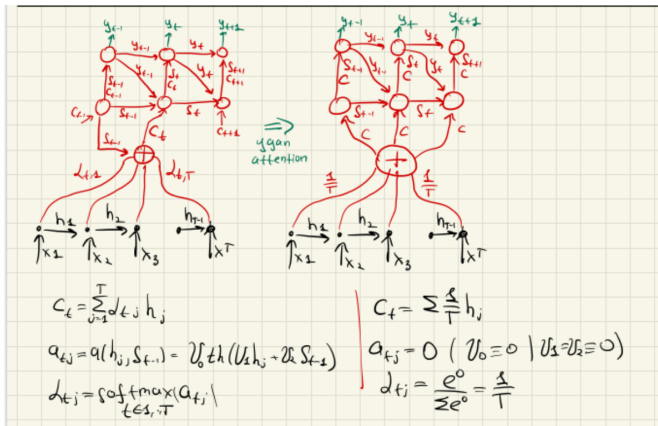 y_{t-1} y_t y_{t+1}
y_{t-1} y_t
S_{t-1} y_{t-1} S_t y_t S_{t+1}
C_{t-1} C_t C_{t+1}
C_{t-1} S_{t-1} S_t
S_{t-1} C_t C_{t+1}
α_{t,1} α_{t,T}
h_1 h_2 h_{T-1}
x_1 x_2 x_3 x_T
⇒
attention
y_{t-1} y_t y_{t+1}
y_{t-1} y_t
S_{t-1} y_{t-1} S_t y_t S_{t+1}
C C C
S_{t-1} S_t
C C C
1/T 1/T
h_1 h_2 h_{T-1}
x_1 x_2 x_3 x_T
C_t = Σ_{j=1}^{T} α_{tj} h_j
a_{tj} = a(h_j, S_{t-1}) = V_0 th(V_1 h_j + V_2 S_{t-1})
α_{tj} = softmax(a_{tj})
t∈1,..T
C_t = Σ 1/T h_j
a_{tj} = 0 ( V_0 ≡ 0 | V_1 = V_2 ≡ 0)
α_{tj} = e^0 / Σe^0 = 1/T